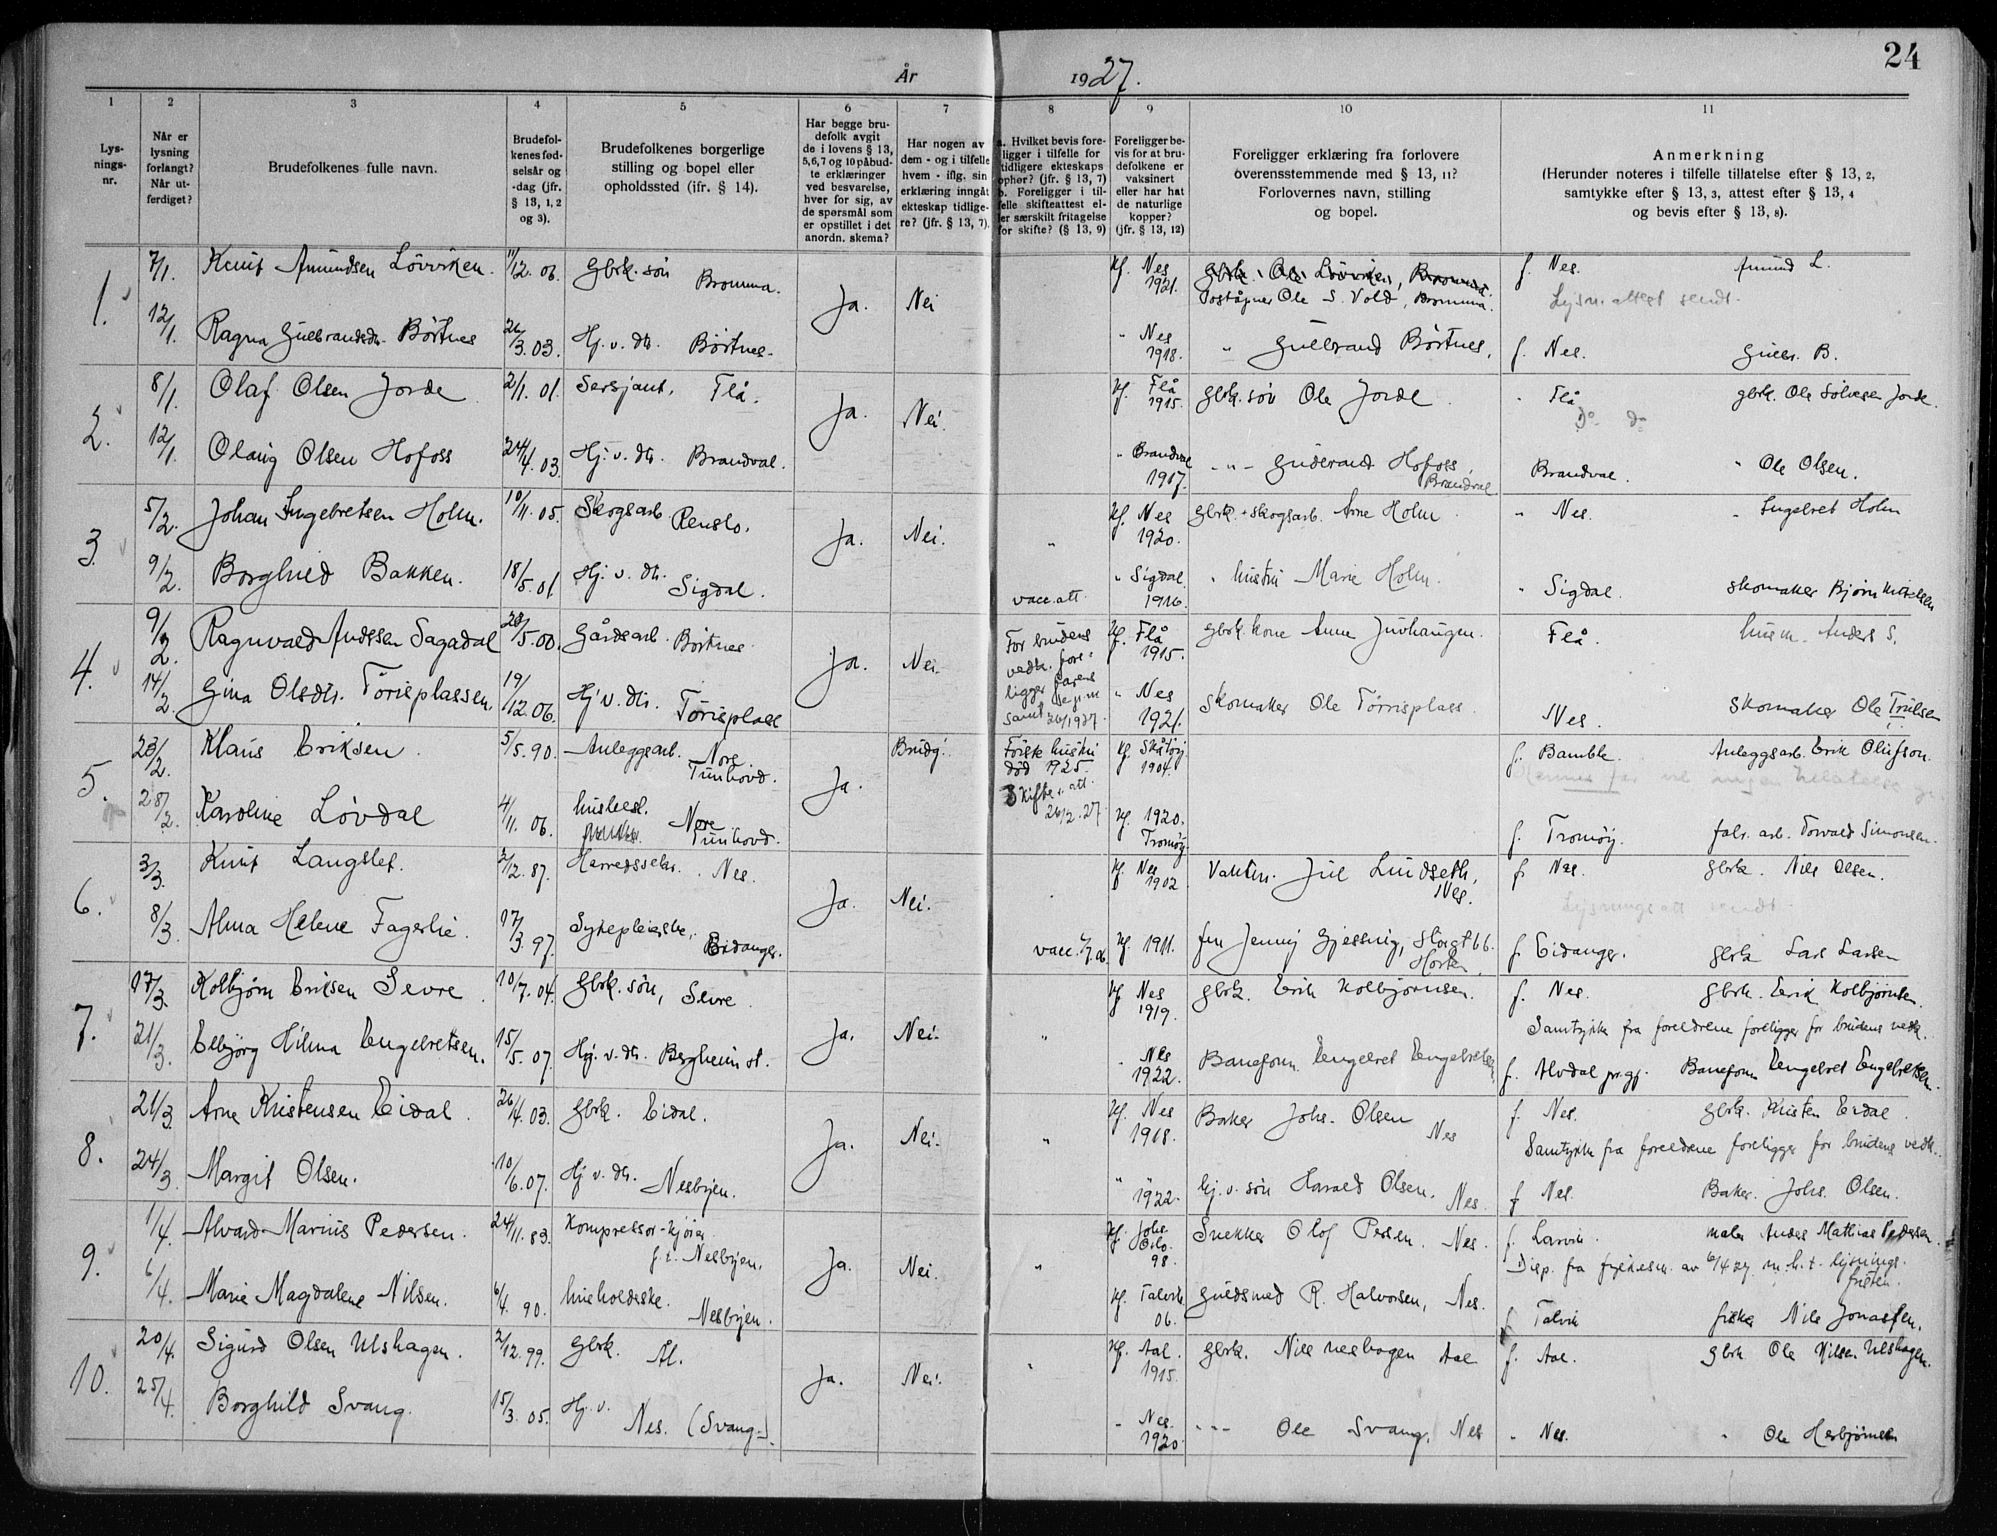 24
År 1927.
1 2 3 4 5 6 7 8 9 10 11
Lys-
nings-
nr.
Når er
lysning
forlangt?
Når ut-
ferdiget?
Brudefolkenes fulle navn.
Brudefol-
kenes fød-
selsår og
-dag (jfr.
§ 13, 1, 2
og 3).
Brudefolkenes borgerlige
stilling og bopel eller
opholdssted (ifr. § 14).
Har begge bru-
defolk avgit
de i lovens § 13,
5,6,7 og 10 påbud-
te erklæringer
ved besvarelse,
hver for sig, av
de spørsmål som
er opstillet i det
anordn. skema?
Har nogen av
dem - og i tilfelle
hvem - iflg. sin
erklæring inngåt
ekteskap tidlige-
re? (jfr. § 13, 7).
a. Hvilket bevis fore-
ligger i tilfelle for
tidligere ekteskaps
ophør? (jfr. § 13, 7)
b. Foreligger i til-
felle skifteattest el-
ler særskilt fritagelse
for skifte? (§ 13, 9)
Foreligger be-
vis for at bru-
defolkene er
vaksinert
eller har hat
de naturlige
kopper?
(jfr. § 13, 12)
Foreligger erklæring fra forlovere
overensstemmende med § 13, 11?
Forlovernes navn, stilling
og bopel.
Anmerkning
(Herunder noteres i tilfelle tillatelse efter § 13, 2,
samtykke efter § 13, 3, attest efter § 13, 4
og bevis efter § 13, 8).
1. 7/1. Knut Amundsen Løvviken. 11/12. 06. Gbrk. søn Bromma. Ja. Nei Kf. Nes 1921. Gbrk. Ole Løvviken, Bromma. f. Nes. Amund L.
Poståpner Ole S. Vold, Bromma. Lysn. attest sendt.
12/1. Ragna Gulbrandsdtr. Børtnes 26/3. 03. Hj. v. dtr. Børtnes. " Nes 1918. " Gulbrand Børtnes, f. Nes. Gulbr. B.
2. 8/1. Olaf Olsen Jorde 2/1. 01. Sersjant, Flå. Ja. Nei. Kf. Flå 1915. gbrk. søn Ole Jorde. " Flå gbrk. Ole Sølvesen Jorde.
Do do
12/1. Olaug Olsen Hofoss 24/4. 03. Hj. v. dtr. Brandval. " Brandval 1917. " " Gudbrand Hofoss, Brandval Brandval. " Ole Olsen.
3. 5/2. Johan Ingebretsen Holm. 10/11. 05. Skogsarb. Renslo. Ja. Nei. " Kf. Nes 1920. gbrk. + skogsarb. Arne Holm " Nes. " Ingebret Holm
9/2. Borghild Bakken. 18/5. 01 Hj. v. dtr. Sigdal. vacc. att. " Sigdal. 1916. " hustru Marie Holm. " Sigdal. skomaker Bjørn
4. 9/2. Ragnvald Andssen Sagadal 28/5. 00. Gårdsarb. Børtnes. Ja. Nei. For brudens vedk. fore- ligger farens samt. 1927. Kf. Flå 1915. gbrk. kone Anne Juvhaugen. Flå. husm. Anders S.
14/2. Gina Olsdtr. Tørrisplassen. 19/12. 06. Hj. v. dtr. Tørrisplass " Nes 1921. Skomaker Ole Tørrisplass. Nes. Skomaker Ole Trulsen
5. 23/2. Klaus Eriksen. 5/5. 90. Anleggsarb. Nore Tunhovd. Ja. Brudg. Første hustru død 1925. Skifte. att. 26/2. 27 Kf. Skåtøy 1904. f. Bamble. Anleggsarb. Erik Olufson.
28/2. Karoline Løvdal 4/11. 06. husbest. Nore Tunhovd. Kf. 1920. Tromøy f. Tromøy. fabr. arb. Torvald Simonsen.
6. 3/3. Knut Langslet. 2/12. 87. Herredssekr. Nes. Ja. Nei. Kf. Nes 1902 Vaktm. Jul Lindseth, Nes. f. Nes. gbrk. Nils Olsen.
Lysningsatt. sendt.
8/3. Alma Helene Fagerlie. 17/3. 97. Sykepleierske. Eidanger. Kf. 1911. fru Jenny Gjessing, Storgt 66. Horten f Eidanger. gbrk Lars Larsen
7. 17/3. Kolbjørn Eriksen Sevre. 10/7. 04. Gbrk. søn, Sevre Ja. Nei. " Kf Nes 1919. gbrk. Erik Kolbjørnsen. f. Nes. Gbrk. Erik Kolbjørnsen.
Samtykke fra foreldrene foreligger for brudens vedk.
21/3. Elbjørg Hilma Engebretsen. 15/5. 07. Hj. v. dtr. Bergheim st. " Nes 1922. Baneform. Engebret Engebretsen. f. Alvdal pr.gj. Baneform Engebret Engebretsen.
8. 21/3. Arne Kristensen Eidal. 26/4. 03. Gbrk. Eidal. Ja. Nei. " Kf. Nes 1918. Baker Johs. Olsen Nes f. Nes. Gbrk. Kristen Eidal.
Samtykke fra foreldrene foreligger for brudens vedk.
24/3. Margit Olsen. 10/6. 07. Hj. v. dtr. Nesbyen. " " 1922. hj. v. søn Harald Olsen. Nes. f Nes. Baker. Johs. Olsen.
9. 1/4. Alvard Marius Pedersen. 24/11. 83. Kompressor-kjører f.t. Nesbyen. Ja. Nei. " Kf Johs Oslo. 98. Snekker Olof Persen. Nes. f. Larvik. maler Anders Mathias Pedersen.
Disp. fra fylkesm. av 6/4 27. m. h. t. lysnings- fristen.
6/4. Marie Magdalene Nilsen. 6/4. 90. husholderske. Nesbyen. Kf. Talvik 06. Gullsmed R. Halvorsen, Nes. f Talvik fisker Nils Jonassen.
10. 20/4. Sigurd Olsen Ulshagen. 2/12. 99. Gbrk. Ål. Ja. Nei. " Kf. Aal. 1915. gbrk. Nils Ulshagen Aal f. Aal. gbrk Ole Nilsen Ulshagen.
25/4. Borghild Svang. 15/3. 05. Hj. v. Nes. (Svang.) " Nes. 1920. " " Ole Svang, Nes " Nes. " Ole Herbjørnsen